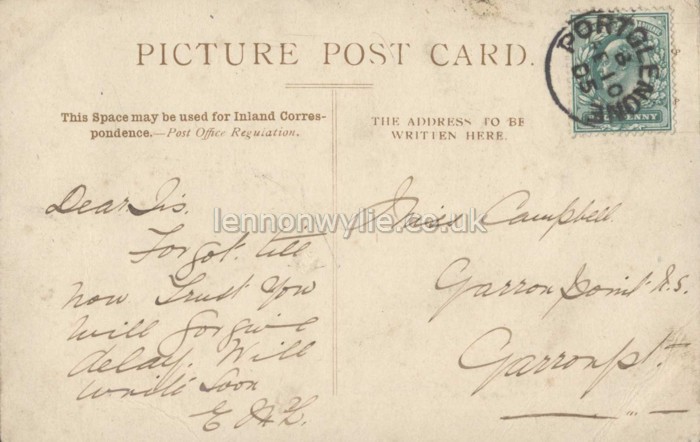 PICTURE POST CARD.
This Space may be used for Inland Corres-
pondence.—Post Office Regulation.
THE ADDRESS TO BE
WRITTEN HERE.
PORTGLENONE
8
10
05
PENNY
lennonwylie.co.uk
Dear Sis.
Forgot till
now Trust you
will forgive
delay. Will
write soon
Miss Campbell
Garron Point N.S.
Garron pt.